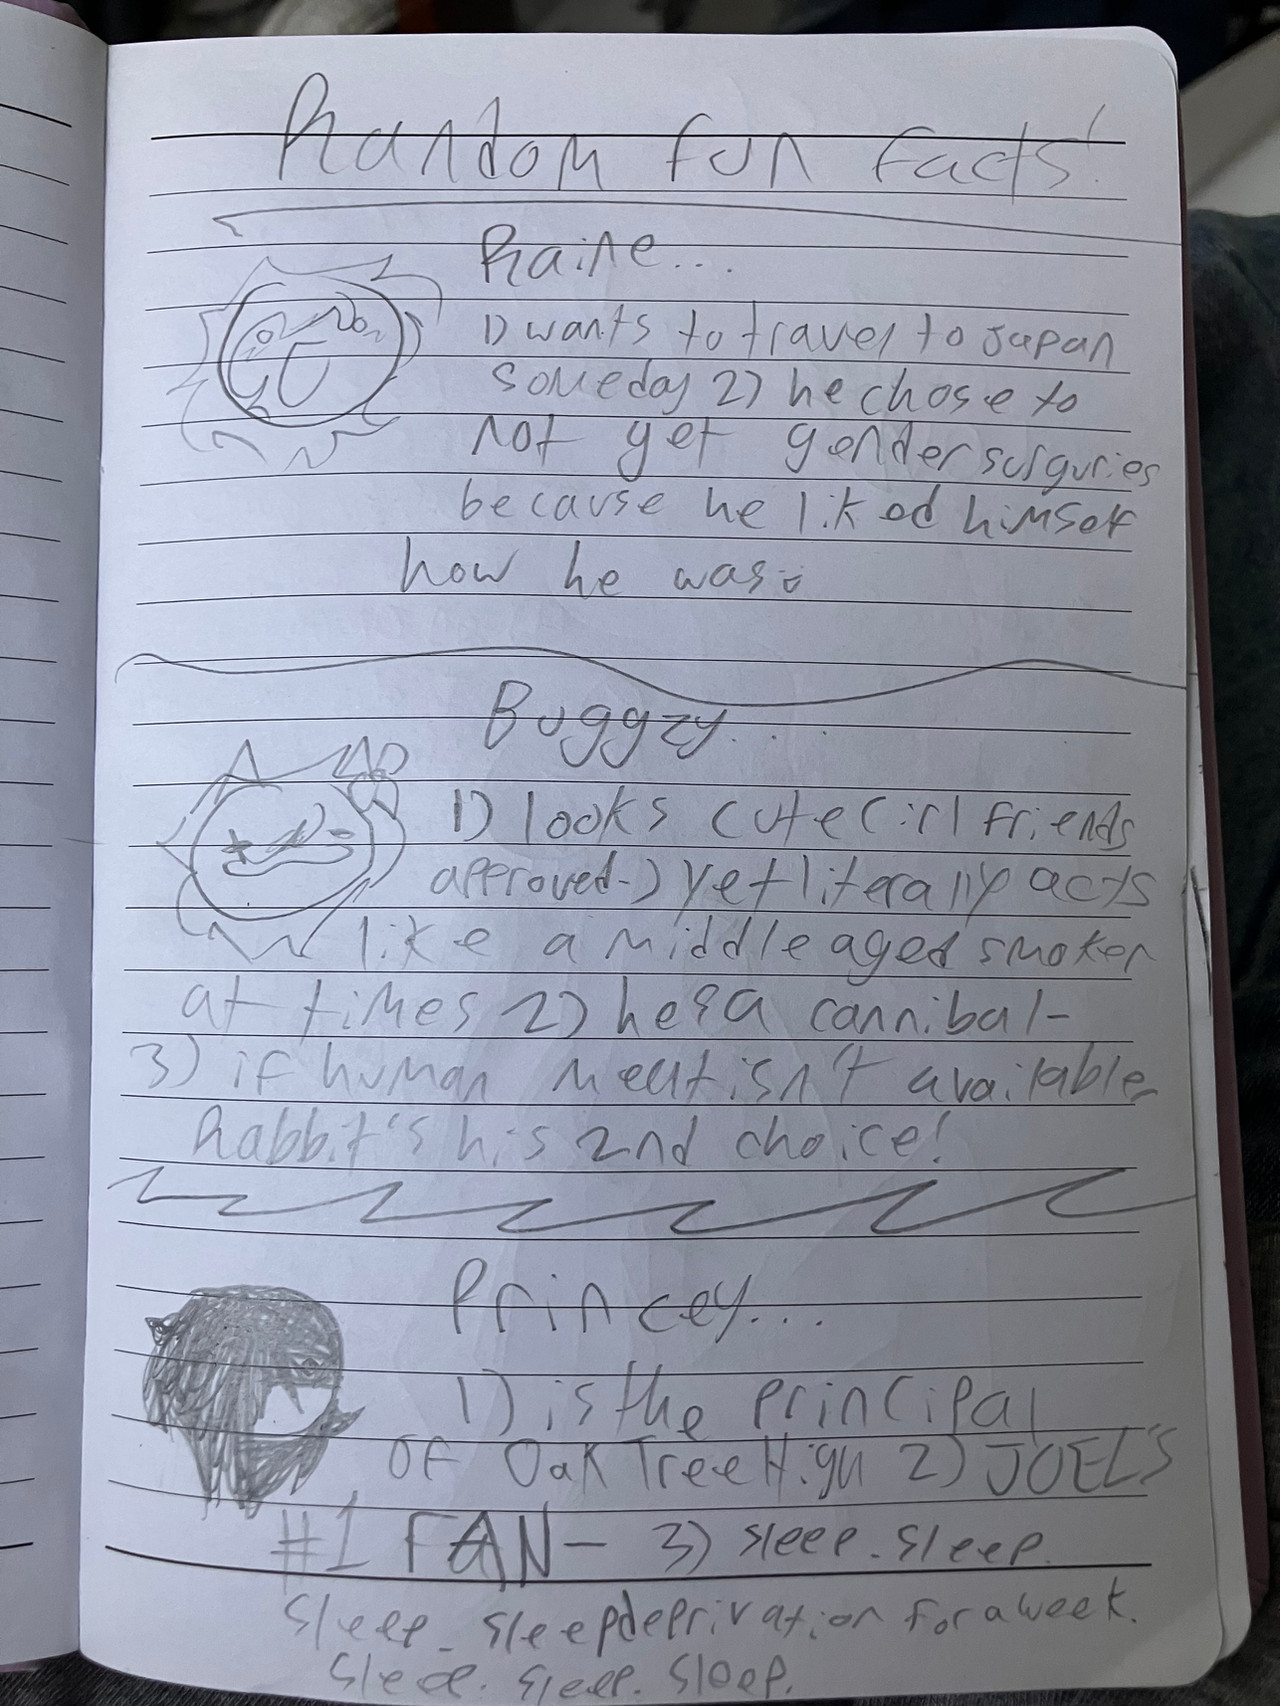 Random fun facts!
Raine...
1) wants to travel to Japan
someday 2) he chose to
not get gender surguries
because he liked himself
how he was
Buggzy....
1) looks cute (irl friends
approved-) yet literally acts
like a middle aged smoker
at times 2) he's a cannibal-
3) if human meat isn't available
Rabbit's his 2nd choice!
Princey...
1) is the principal
OF Oak Tree High 2) JOEL'S
#1 FAN- 3) sleep. sleep.
sleep. sleep deprivation for a week.
sleep. sleep. sleep.